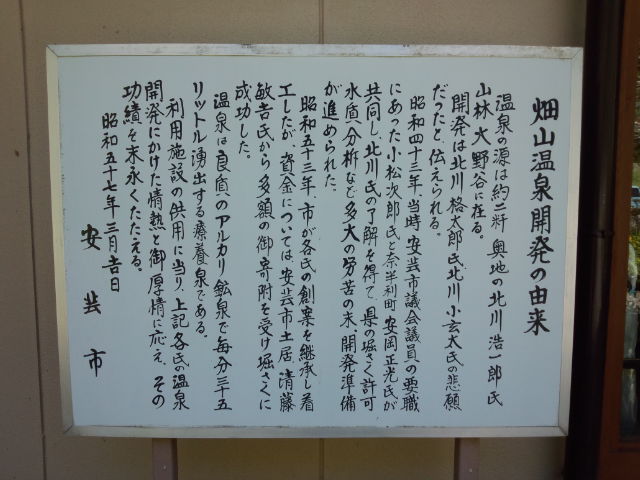 畑山温泉開発の由来
温泉の源は約二粁奥地の北川浩一郎氏
山林大野谷に在る。
開発は北川格太郎氏北川小玄太氏の悲願
だったと伝えられる。
昭和四十三年、当時安芸市議会議員の要職
にあった小松次郎氏と奈半利町安岡正光氏が
共同し、北川氏の了解を得て、県の堀さく許可
水質分析など多大の労苦の末、開発準備
が進められた。
昭和五十三年、市が各氏の創業を継承し着
工したが、資金については、安芸市土居、清藤
敏吉氏から多額の御寄附を受け堀さくに
成功した。
温泉は良質のアルカリ鉱泉で毎分三十五
リットル湧出する療養泉である。
利用施設の供用に当り、上記各氏の温泉
開発にかけた情熱と御厚情に応え、その
功績を末永くたたえる。
昭和五十七年三月吉日
安芸市